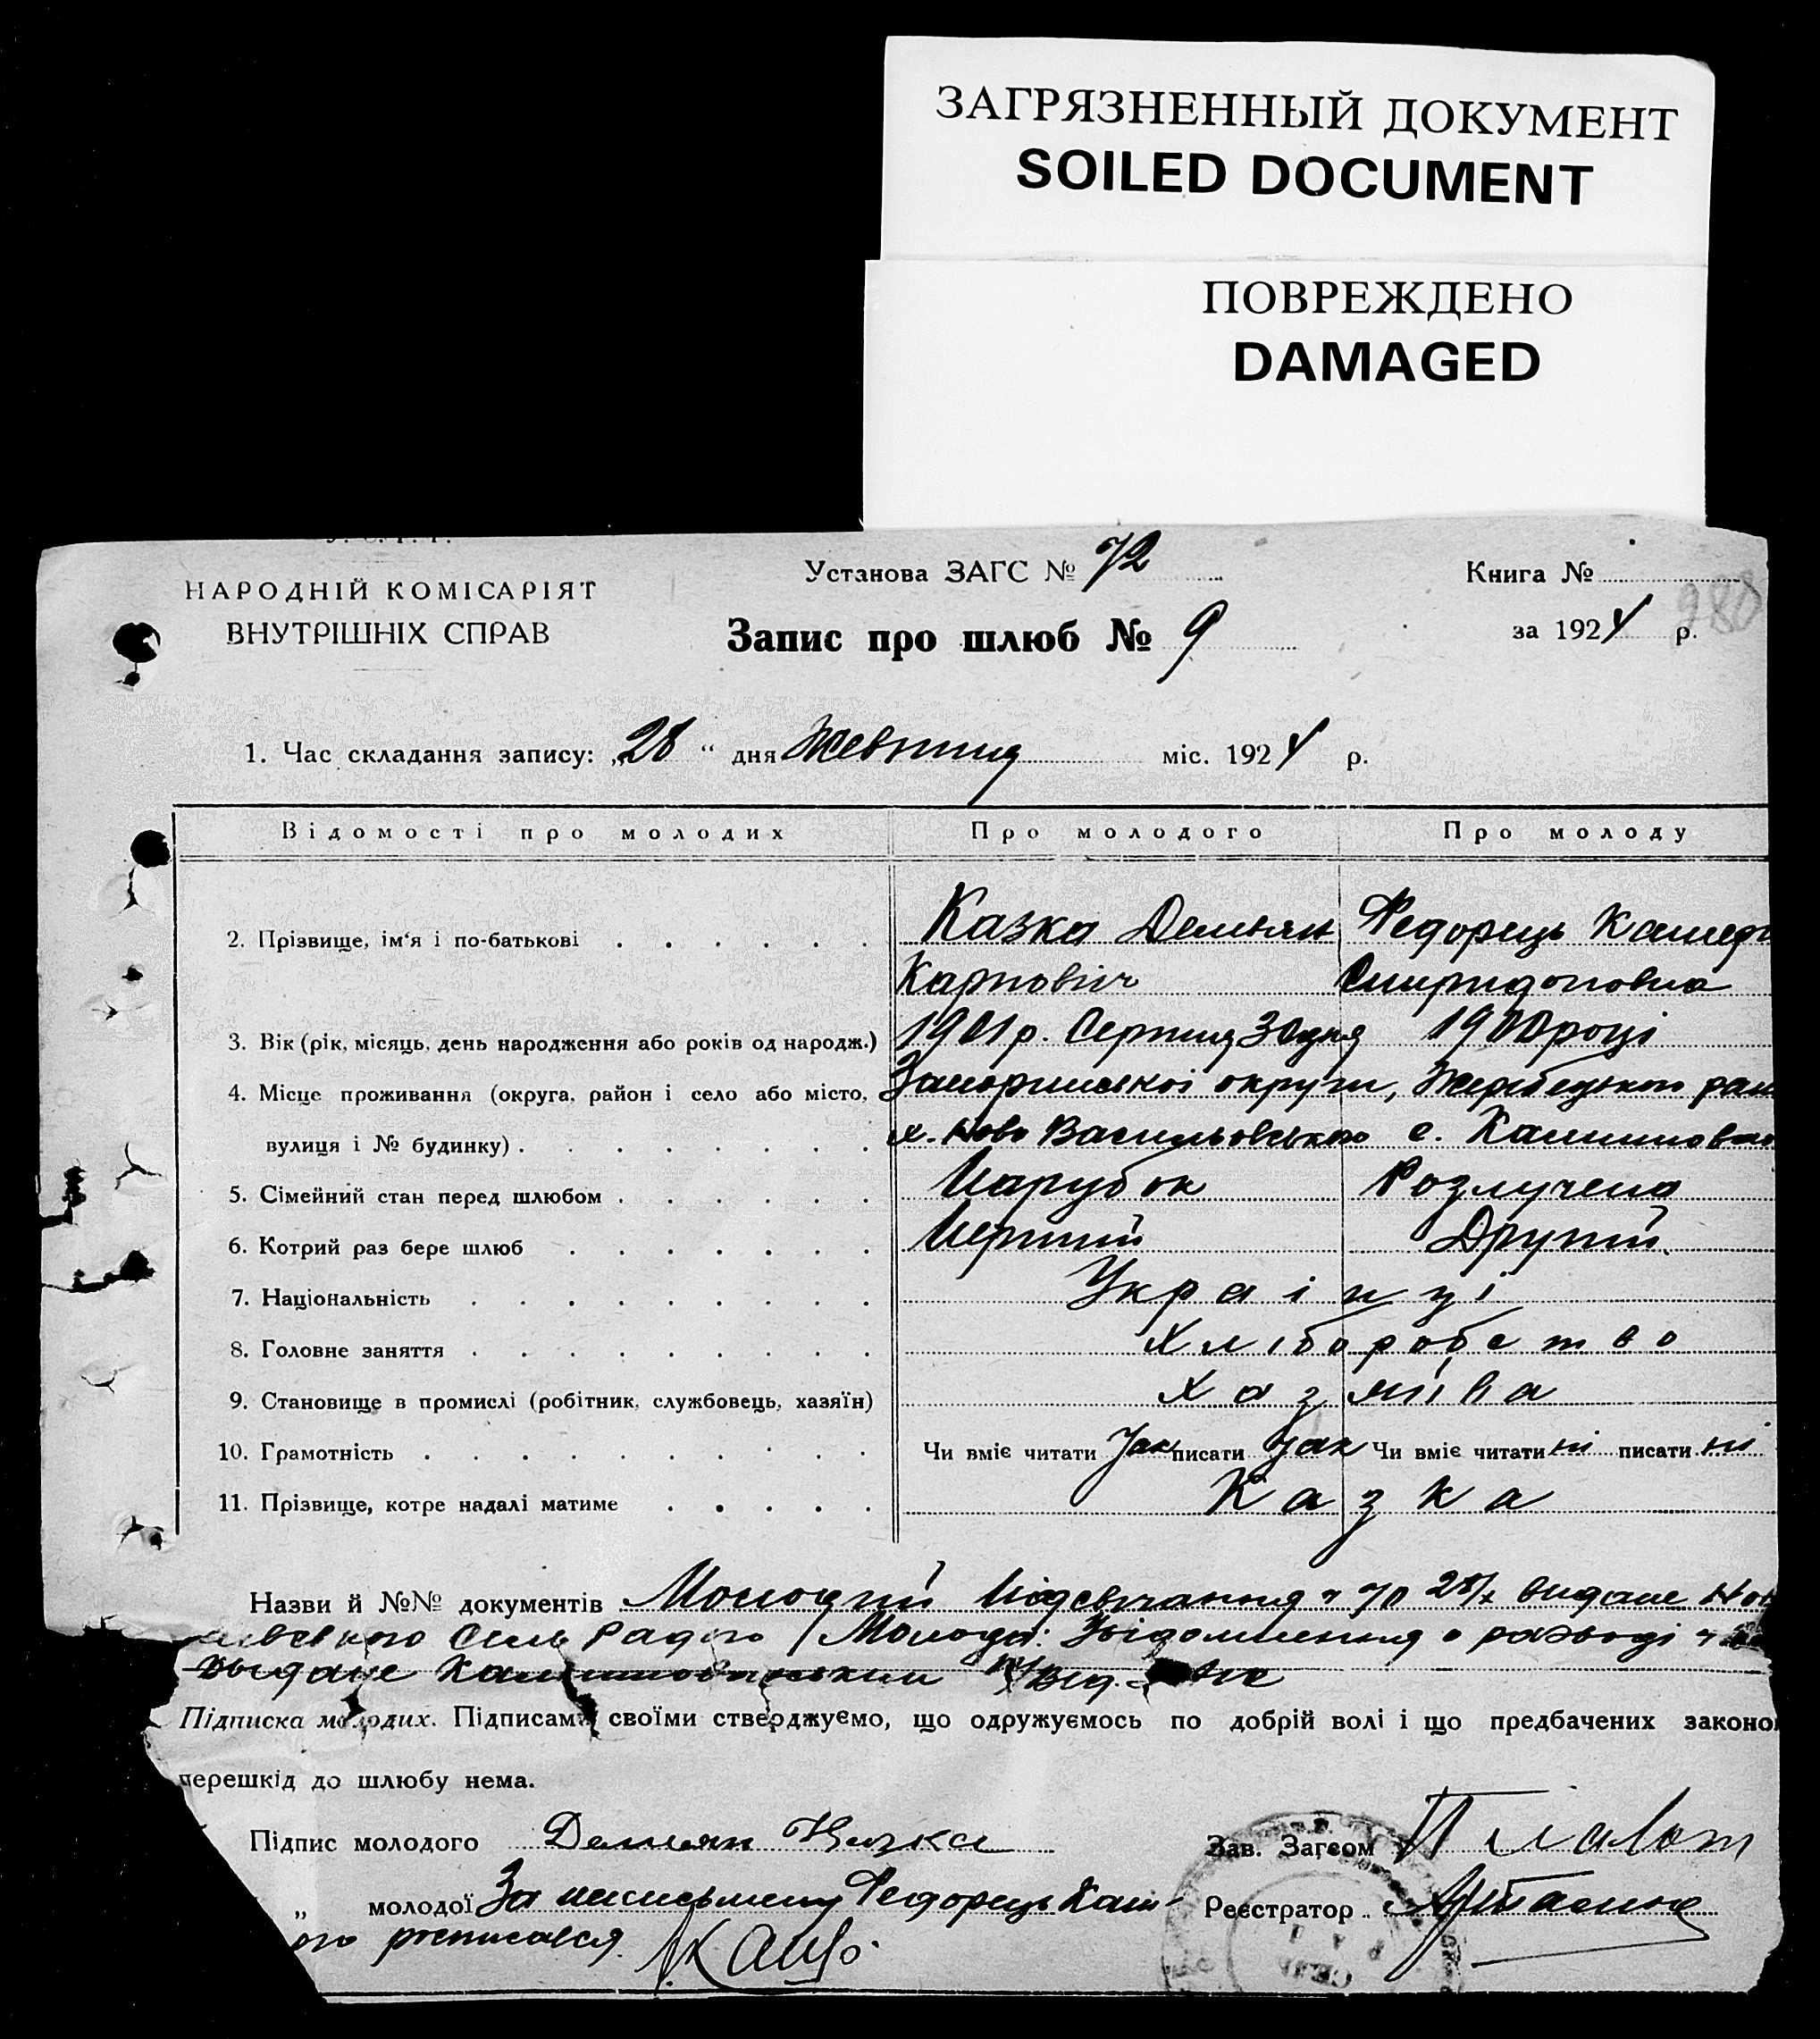 ЗАГРЯЗНЕННЫЙ ДОКУМЕНТ
SOILED DOCUMENT
ПОВРЕЖДЕНО
DAMAGED
НАРОДНІЙ КОМІСАРІЯТ
ВНУТРІШНІХ СПРАВ
Установа ЗАГС № 72
Книга №
280
Запис про шлюб № 9
за 1924 р.
1. Час складання запису: „28“ дня Жевтня міс. 1924 р.
Відомості про молодих Про молодого Про молоду
2. Прізвище, ім‘я і по-батькові Казка Демьян Федорець
Карповіч Спиридоновна
3. Вік (рік, місяць, день народження або років од народж.) 1901 р. Серпня 30 дня 1900 році
4. Місце проживання (округа, район і село або місто, округи, Жеребецького
вулиця і № будинку) х. Ново Васильовського с.
5. Сімейний стан перед шлюбом Парубок Розлучена
6. Котрий раз бере шлюб Перший Другий
7. Національність Українці
8. Головне заняття Хліборобство
9. Становище в промислі (робітник, службовець, хазяїн)
10. Грамотність Чи вміє читати так писати так Чи вміє читати ні писати ні
11. Прізвище, котре надалі матиме Казка
Назви й №№ документів Молодий Посвічання ч 70 28/X видане
Сель Радою / Молода: Увідомлення о разводі ч
выдане
Підписка молодих. Підписами своїми стверджуємо, що одружуємось по добрій волі і що предбачених законо
перешкід до шлюбу нема.
Підпис молодого Демьян Казка Зав. Загсом
„ молодої За неписьмену Федорець Реєстратор
росписався